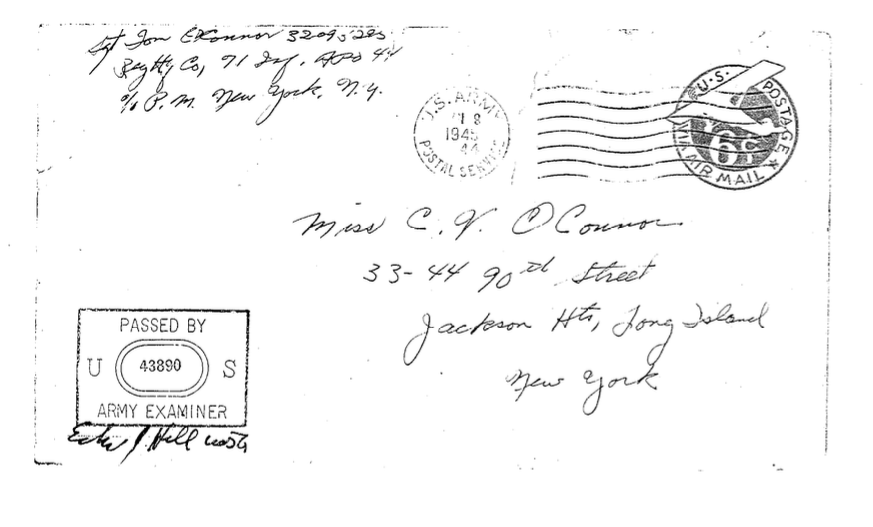 Sgt Tom O'Connor
Reg Hq Co, 71 Inf. APO 44
c/o P.M. New York, N.Y.
U.S. ARMY
8
1945
44
POSTAL SERVICE
U.S. POSTAGE
6¢
VIA AIR MAIL
Miss C. V. O'Connor
33-44 90th Street
Jackson Hts, Long Island
New York
PASSED BY
U 43890 S
ARMY EXAMINER
J. Hill